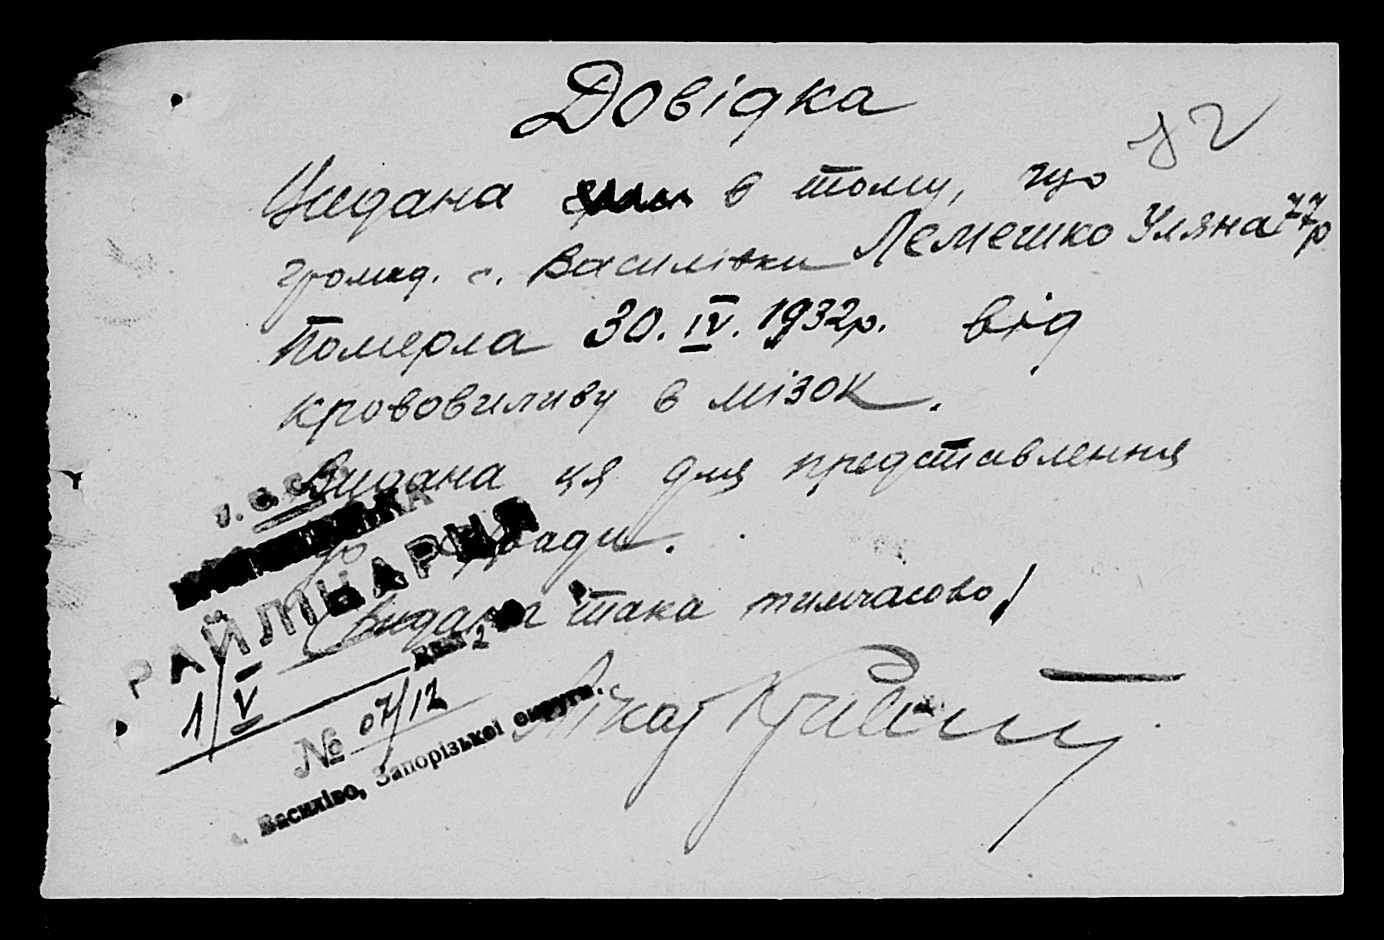 Довідка
12
Видана в тому, що
громад. с. Василівки Лемешко Уляна 77р
Померла 30.IV.1932р. від
крововиливу в мізок.
Видана ця для представлення
Видана така тимчасово!
У.С.Р.Р.
РАЙЛІКАРНЯ
1/V
№ 07/12
Лікар
с. Василівo, Запорізької округи.